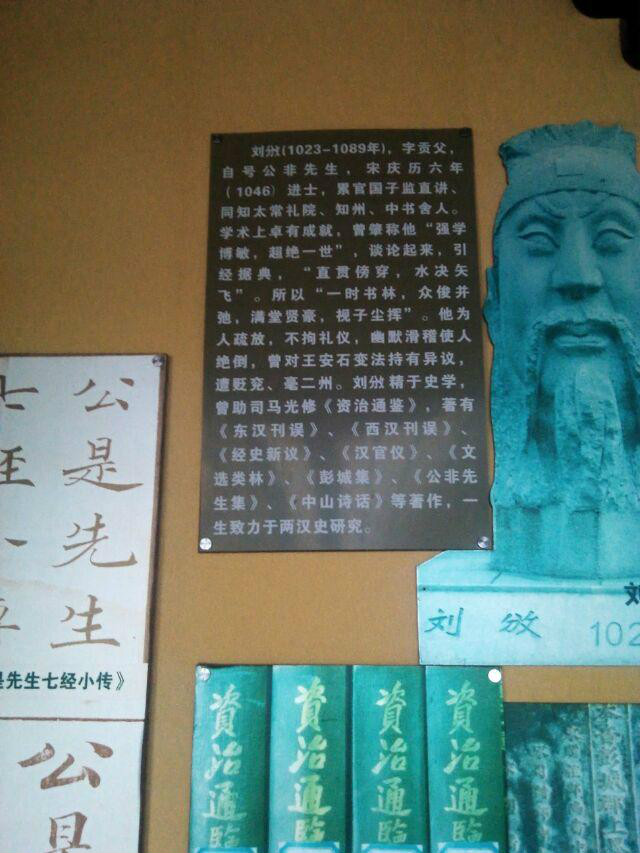 刘攽(1023-1089年)，字贡父，
自号公非先生，宋庆历六年
(1046)进士，累官国子监直讲、
同知太常礼院、知州、中书舍人。
学术上卓有成就，曾肇称他“强学
博敏，超绝一世”，谈论起来，引
经据典，“直贯傍穿，水决矢
飞”。所以“一时书林，众俊并
弛，满堂贤豪，视子尘挥”。他为
人疏放，不拘礼仪，幽默滑稽使人
绝倒，曾对王安石变法持有异议，
遭贬兖、亳二州。刘攽精于史学，
曾助司马光修《资治通鉴》，著有
《东汉刊误》、《西汉刊误》、
《经史新议》、《汉官仪》、《文
选类林》、《彭城集》、《公非先
生集》、《中山诗话》等著作，一
生致力于两汉史研究。
公是先生
七
一
是先生七经小传》
公是
刘攽
刘
102
資治通鑑
資治通鑑
資治通鑑
資治通鑑